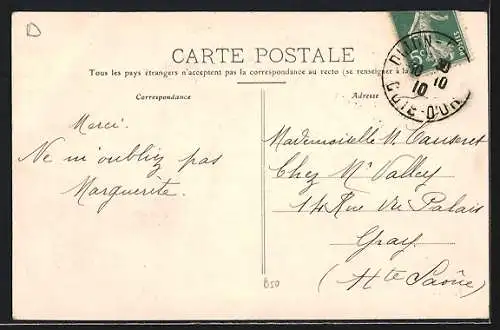 D
CARTE POSTALE
Tous les pays étrangers n'acceptent pas la correspondance au recto (se renseigner à la
Correspondance
Adresse
Merci.
Ne m'oubliez pas
Marguerite.
Mademoiselle M. Causeret
Chez Mr Valley
14 Rue du Palais
Gray
(Hte Saône)
DIJON
10
10
COTE-D'OR
5c
POSTES
B50